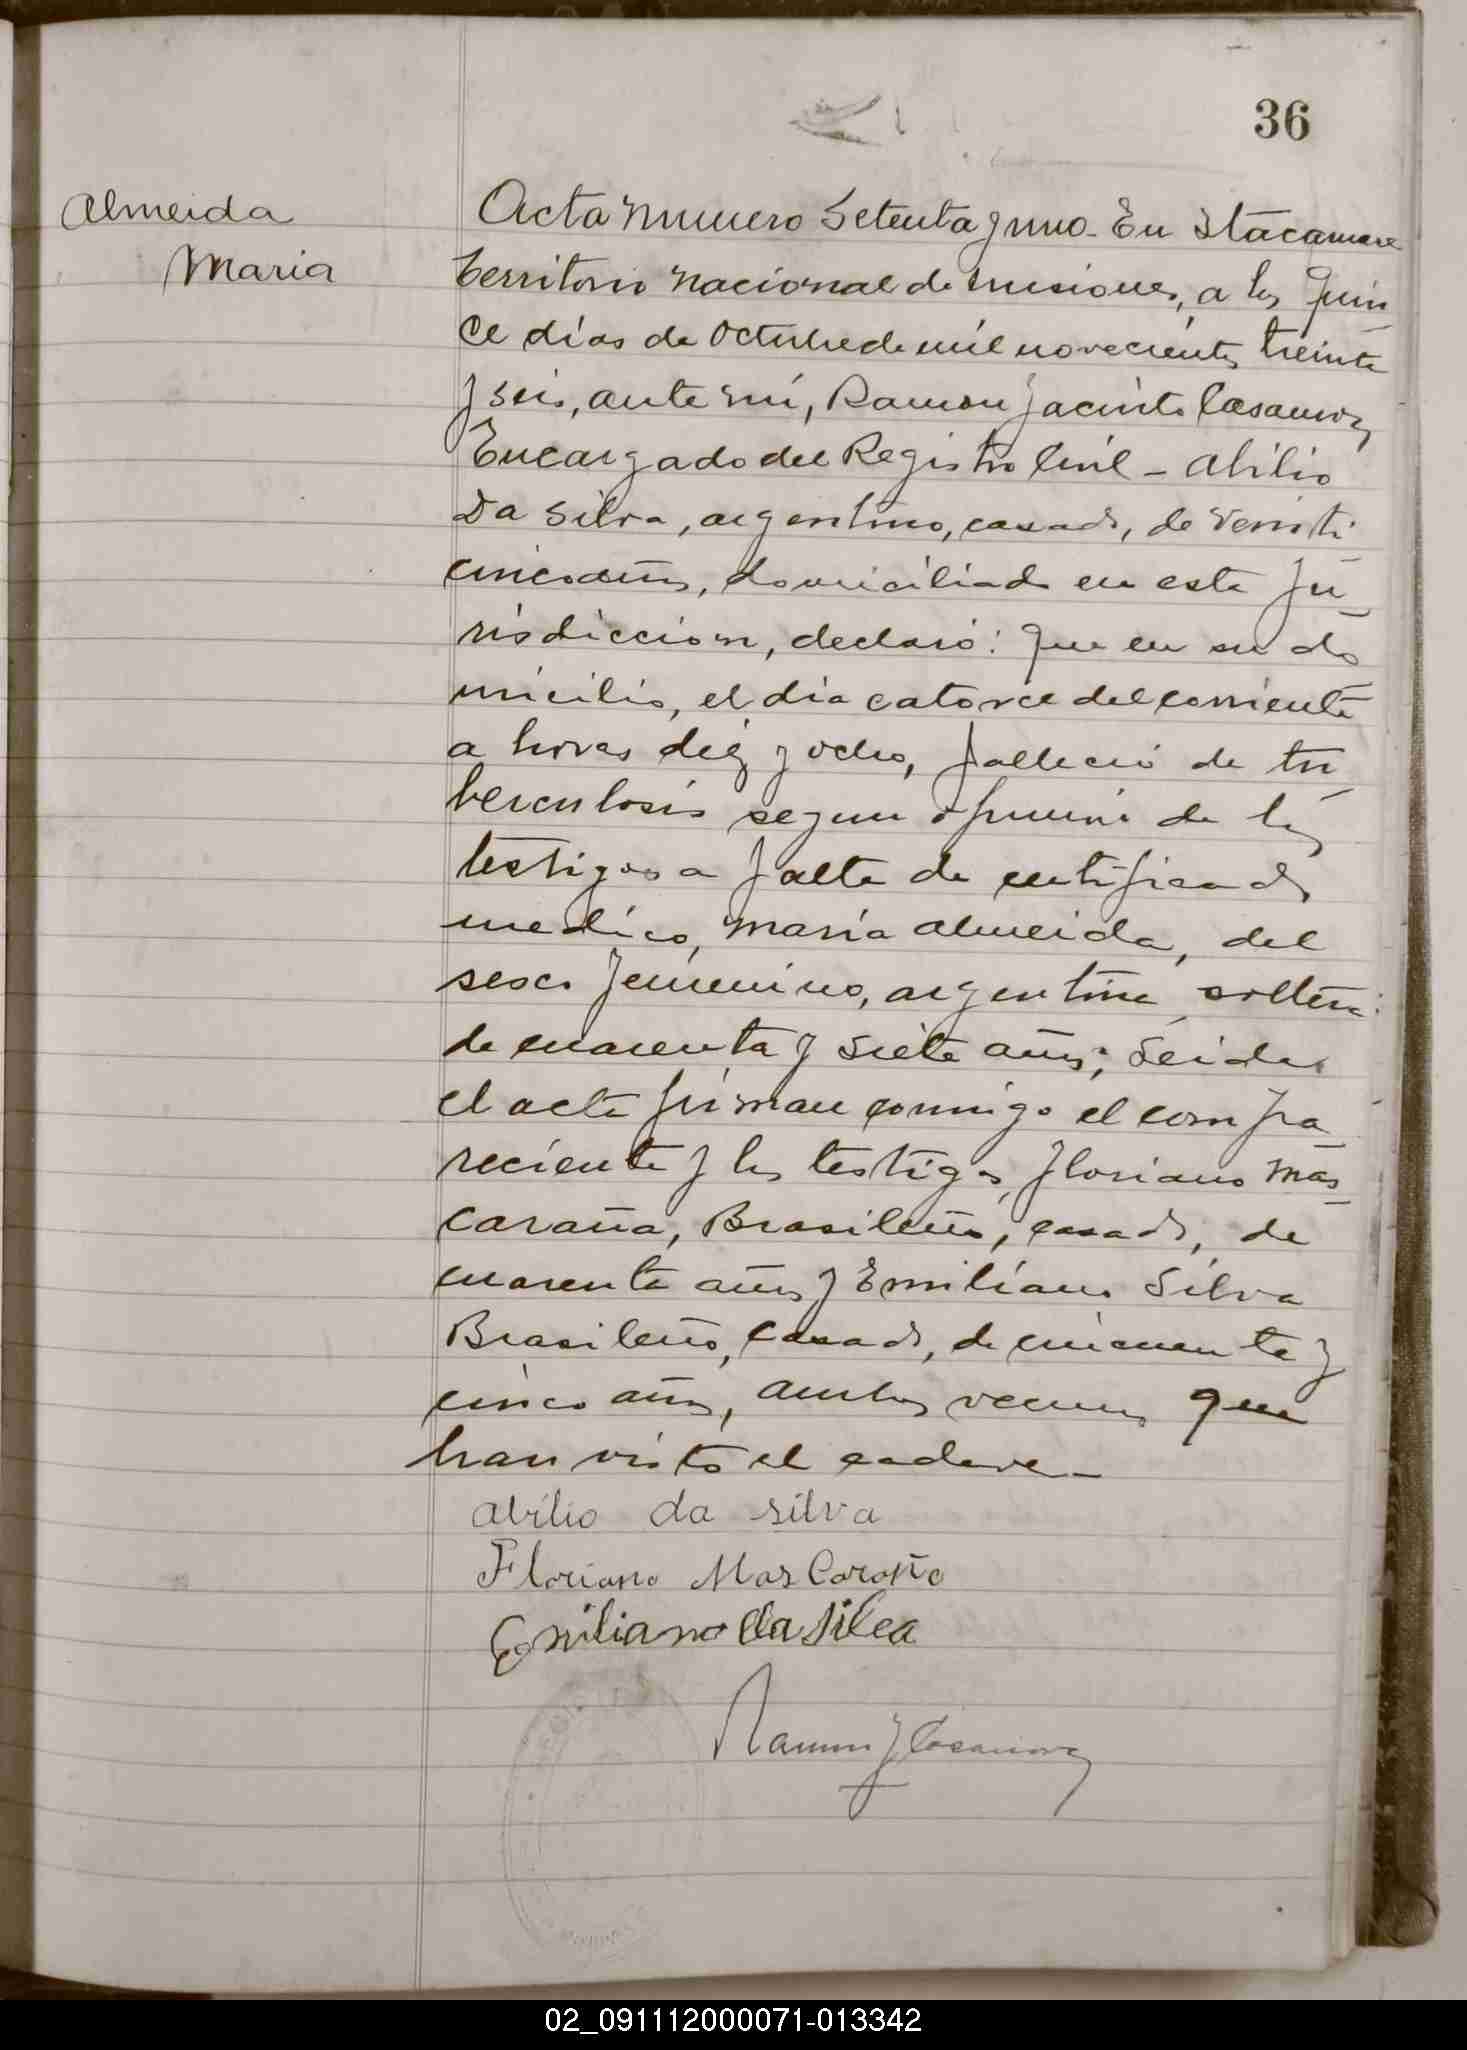 36
Almeida
Maria
Acta Numero Setenta y uno - En Itacaruare
territorio Nacional de Misiones, a los quin
ce días de Octubre de mil novecientos treinta
y seis, ante mí, Ramon Jacinto Casanova
Encargado del Registro Civil - Abilio
Da Silva, argentino, casado, de veinti
cinco años, domiciliado en esta ju
risdiccion, declaró: que en su do
micilio, el dia catorce del corriente
a horas diéz y ocho, falleció de tu
berculosis segun opinion de los
testigos a falta de certificado
medico, Maria Almeida, del
sexo femenino, argentina soltera
de cuarenta y siete años; Leida
el acta firman conmigo el compa
reciente y los testigos, Floriano Mas
caraña, Brasileño, casado, de
cuarenta años y Emiliano Silva
Brasileño, casado, de cincuenta y
cinco años, ambos vecinos que
han visto el cadaver -
Abilio da silva
Floriano Mas Caraña
Emiliano da Silva
Ramon J Casanova
02_091112000071-013342